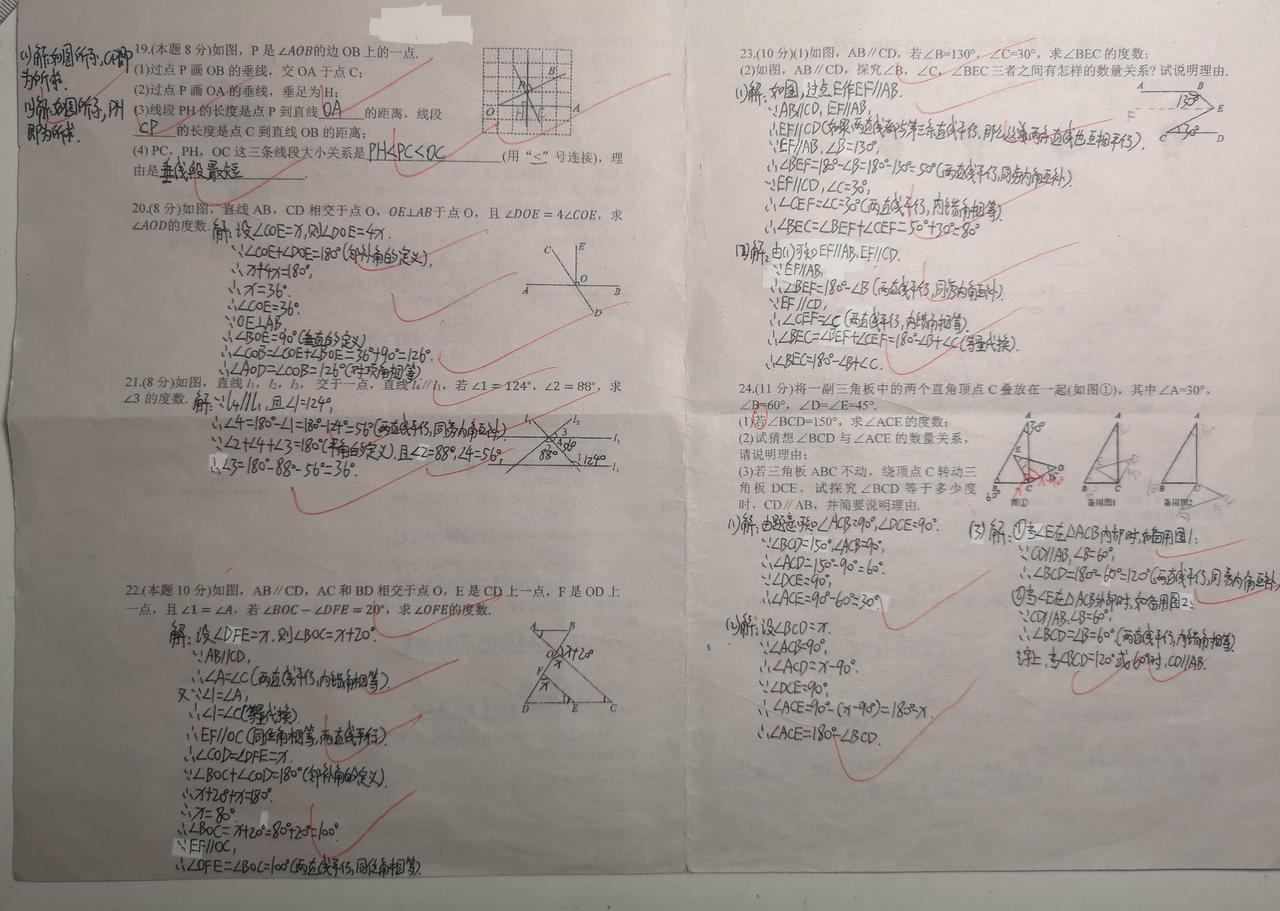 (1)解:如图所示,CP即
为所求.
(2)解:如图所示,PH
即为所求.
19.(本题 8 分)如图,P 是∠AOB的边 OB 上的一点.
(1)过点 P 画 OB 的垂线,交 OA 于点 C;
(2)过点 P 画 OA 的垂线,垂足为 H;
(3)线段 PH 的长度是点 P 到直线 OA 的距离,线段
CP 的长度是点 C 到直线 OB 的距离;
(4) PC,PH,OC 这三条线段大小关系是 PH<PC<OC (用“<”号连接),理
由是 垂线段最短 .
20.(8 分)如图,直线 AB,CD 相交于点 O,OE⊥AB于点 O,且 ∠DOE=4∠COE,求
∠AOD的度数.
解:设∠COE=x,则∠DOE=4x.
∵∠COE+∠DOE=180°(邻补角的定义),
∴x+4x=180°,
∴x=36°.
∴∠COE=36°.
∵OE⊥AB,
∴∠BOE=90°(垂直的定义)
∴∠COB=∠COE+∠BOE=36°+90°=126°.
∴∠AOD=∠COB=126°(对顶角相等)
21.(8 分)如图,直线 l₁,l₂,l₃, 交于一点,直线 l₄∥l₁,若 ∠1=124°,∠2=88°,求
∠3 的度数.
解:∵l₄∥l₁,且∠1=124°,
∴∠4=180°-∠1=180°-124°=56°(两直线平行,同旁内角互补)
∵∠2+∠4+∠3=180°(平角的定义),且∠2=88°,∠4=56°,
∴∠3=180°-88°-56°=36°.
22.(本题 10 分)如图,AB∥CD,AC 和 BD 相交于点 O,E 是 CD 上一点,F 是 OD 上
一点,且 ∠1=∠A,若 ∠BOC-∠DFE=20°,求 ∠OFE的度数.
解:设∠DFE=x,则∠BOC=x+20°.
∵AB∥CD,
∴∠A=∠C(两直线平行,内错角相等)
又∵∠1=∠A,
∴∠1=∠C(等量代换).
∴EF∥OC(同位角相等,两直线平行).
∴∠COD=∠DFE=x.
∵∠BOC+∠COD=180°(邻补角的定义)
∴x+20°+x=180°.
∴x=80°
∴∠BOC=x+20°=80°+20°=100°.
∵EF∥OC,
∴∠DFE=∠BOC=100°(两直线平行,同位角相等).
23.(10 分)(1)如图,AB∥CD,若∠B=130°,∠C=30°,求∠BEC 的度数;
(2)如图,AB∥CD,探究∠B,∠C,∠BEC 三者之间有怎样的数量关系? 试说明理由.
(1)解:如图,过点E作EF∥AB.
∵AB∥CD,EF∥AB,
∴EF∥CD(如果两直线都与第三条直线平行,那么这两条直线也互相平行).
∵EF∥AB,∠B=130°,
∴∠BEF=180°-∠B=180°-130°=50°(两直线平行,同旁内角互补).
∵EF∥CD,∠C=30°,
∴∠CEF=∠C=30°(两直线平行,内错角相等).
∴∠BEC=∠BEF+∠CEF=50°+30°=80°
(2)解:由(1)可知EF∥AB,EF∥CD.
∵EF∥AB,
∴∠BEF=180°-∠B(两直线平行,同旁内角互补).
∵EF∥CD,
∴∠CEF=∠C(两直线平行,内错角相等).
∴∠BEC=∠BEF+∠CEF=180°-∠B+∠C(等量代换).
∴∠BEC=180°-∠B+∠C.
24.(11 分)将一副三角板中的两个直角顶点 C 叠放在一起(如图①),其中∠A=30°,
∠B=60°,∠D=∠E=45°.
(1)若∠BCD=150°,求∠ACE 的度数;
(2)试猜想∠BCD 与∠ACE 的数量关系,
请说明理由;
(3)若三角板 ABC 不动,绕顶点 C 转动三
角板 DCE,试探究∠BCD 等于多少度
时,CD∥AB,并简要说明理由.
图①
备用图1
备用图2
(1)解:由题意可知∠ACB=90°,∠DCE=90°.
∵∠BCD=150°,∠ACB=90°,
∴∠ACD=150°-90°=60°.
∵∠DCE=90°,
∴∠ACE=90°-60°=30°
(2)解:设∠BCD=x.
∵∠ACB=90°,
∴∠ACD=x-90°.
∵∠DCE=90°,
∴∠ACE=90°-(x-90°)=180°-x.
∴∠ACE=180°-∠BCD.
(3)解:①当∠E在△ACB内部时,如备用图1:
∵CD∥AB,∠B=60°,
∴∠BCD=180°-60°=120°(两直线平行,同旁内角互补)
②当∠E在△ACB外部时,如备用图2:
∵CD∥AB,∠B=60°,
∴∠BCD=∠B=60°(两直线平行,内错角相等)
综上,当∠BCD=120°或60°时,CD∥AB.